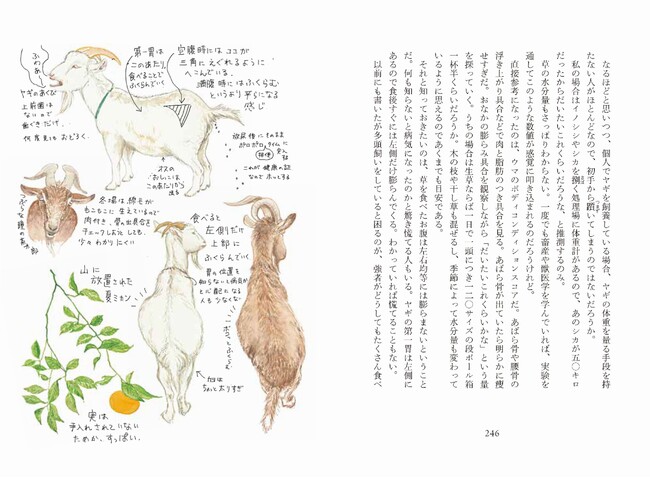 なるほどと思いつつ、個人でヤギを飼養している場合、ヤギの体重を量る手段を持
たない人がほとんどなので、初手から躓いてしまうのではないだろうか。
私の場合はイノシシやシカを捌く処理場に体重計があるので、あのシカが五〇キロ
だったからだいたいこれくらいだろうな、と推測するのみ。
草の水分量もさっぱりわからない。一度でも畜産や獣医学を学んでいれば、実験を
通してこのような数値が感覚に叩き込まれるのだろうけれど。
直接参考になったのは、ウマのボディコンディションスコアだ。あばら骨や腰骨の
浮き上がり具合などで肉と脂肪のつき具合を見る。あばら骨が出ていたら明らかに痩
せすぎだ。おなかの膨らみ具合を観察しながら「だいたいこれくらいかな」という量
を探っていく。うちの場合は生草ならば一日で一頭につき一二〇サイズの段ボール箱
一杯半くらいだろうか。木の枝や干し草も混ぜるし、季節によって水分量も変わって
いるように思えるのであくまでも目安である。
それと知っておきたいのは、草を食べたお腹は左右均等には膨らまないということ
だ。何も知らないと病気になったのかと驚き慌てる人もいる。ヤギの第一胃は左側に
あるので食後すぐには左側だけ膨らんでくる。わかっていれば慌てることもない。
以前にも書いたが多頭飼いをしていると困るのが、強者がどうしてもたくさん食べ
246
ふわあ〜
ヤギのあくび
上前歯は
ないので
歯ぐきだけ。
何度見てもおどろく。
第一胃は
このあたり。
食べることで
ふくらんでいく
空腹時にはココが
三角にえぐれるように
へこんでいる。
満腹時にはふくらむ
というより平らになる
感じ
オスの
おしっこは
このあたりから
出る
放尿後にそのまま
ポロポロタイムに
排便
これが健康の証
なのでホッとする
冬場は綿毛が
もこもこに生えているので
肉付き、骨の出具合を
チェックしおとしても、
少々わかりにくい
食べると
左側だけ
上部に
ふくらんでいく
胃の位置を
知らないと病気か
と心配になる
人も少なくない
ボコッとふくらむ
ちょっと太りすぎ
山に
放置された
夏ミカン
実は
手入れされていない
ためか、すっぱい。